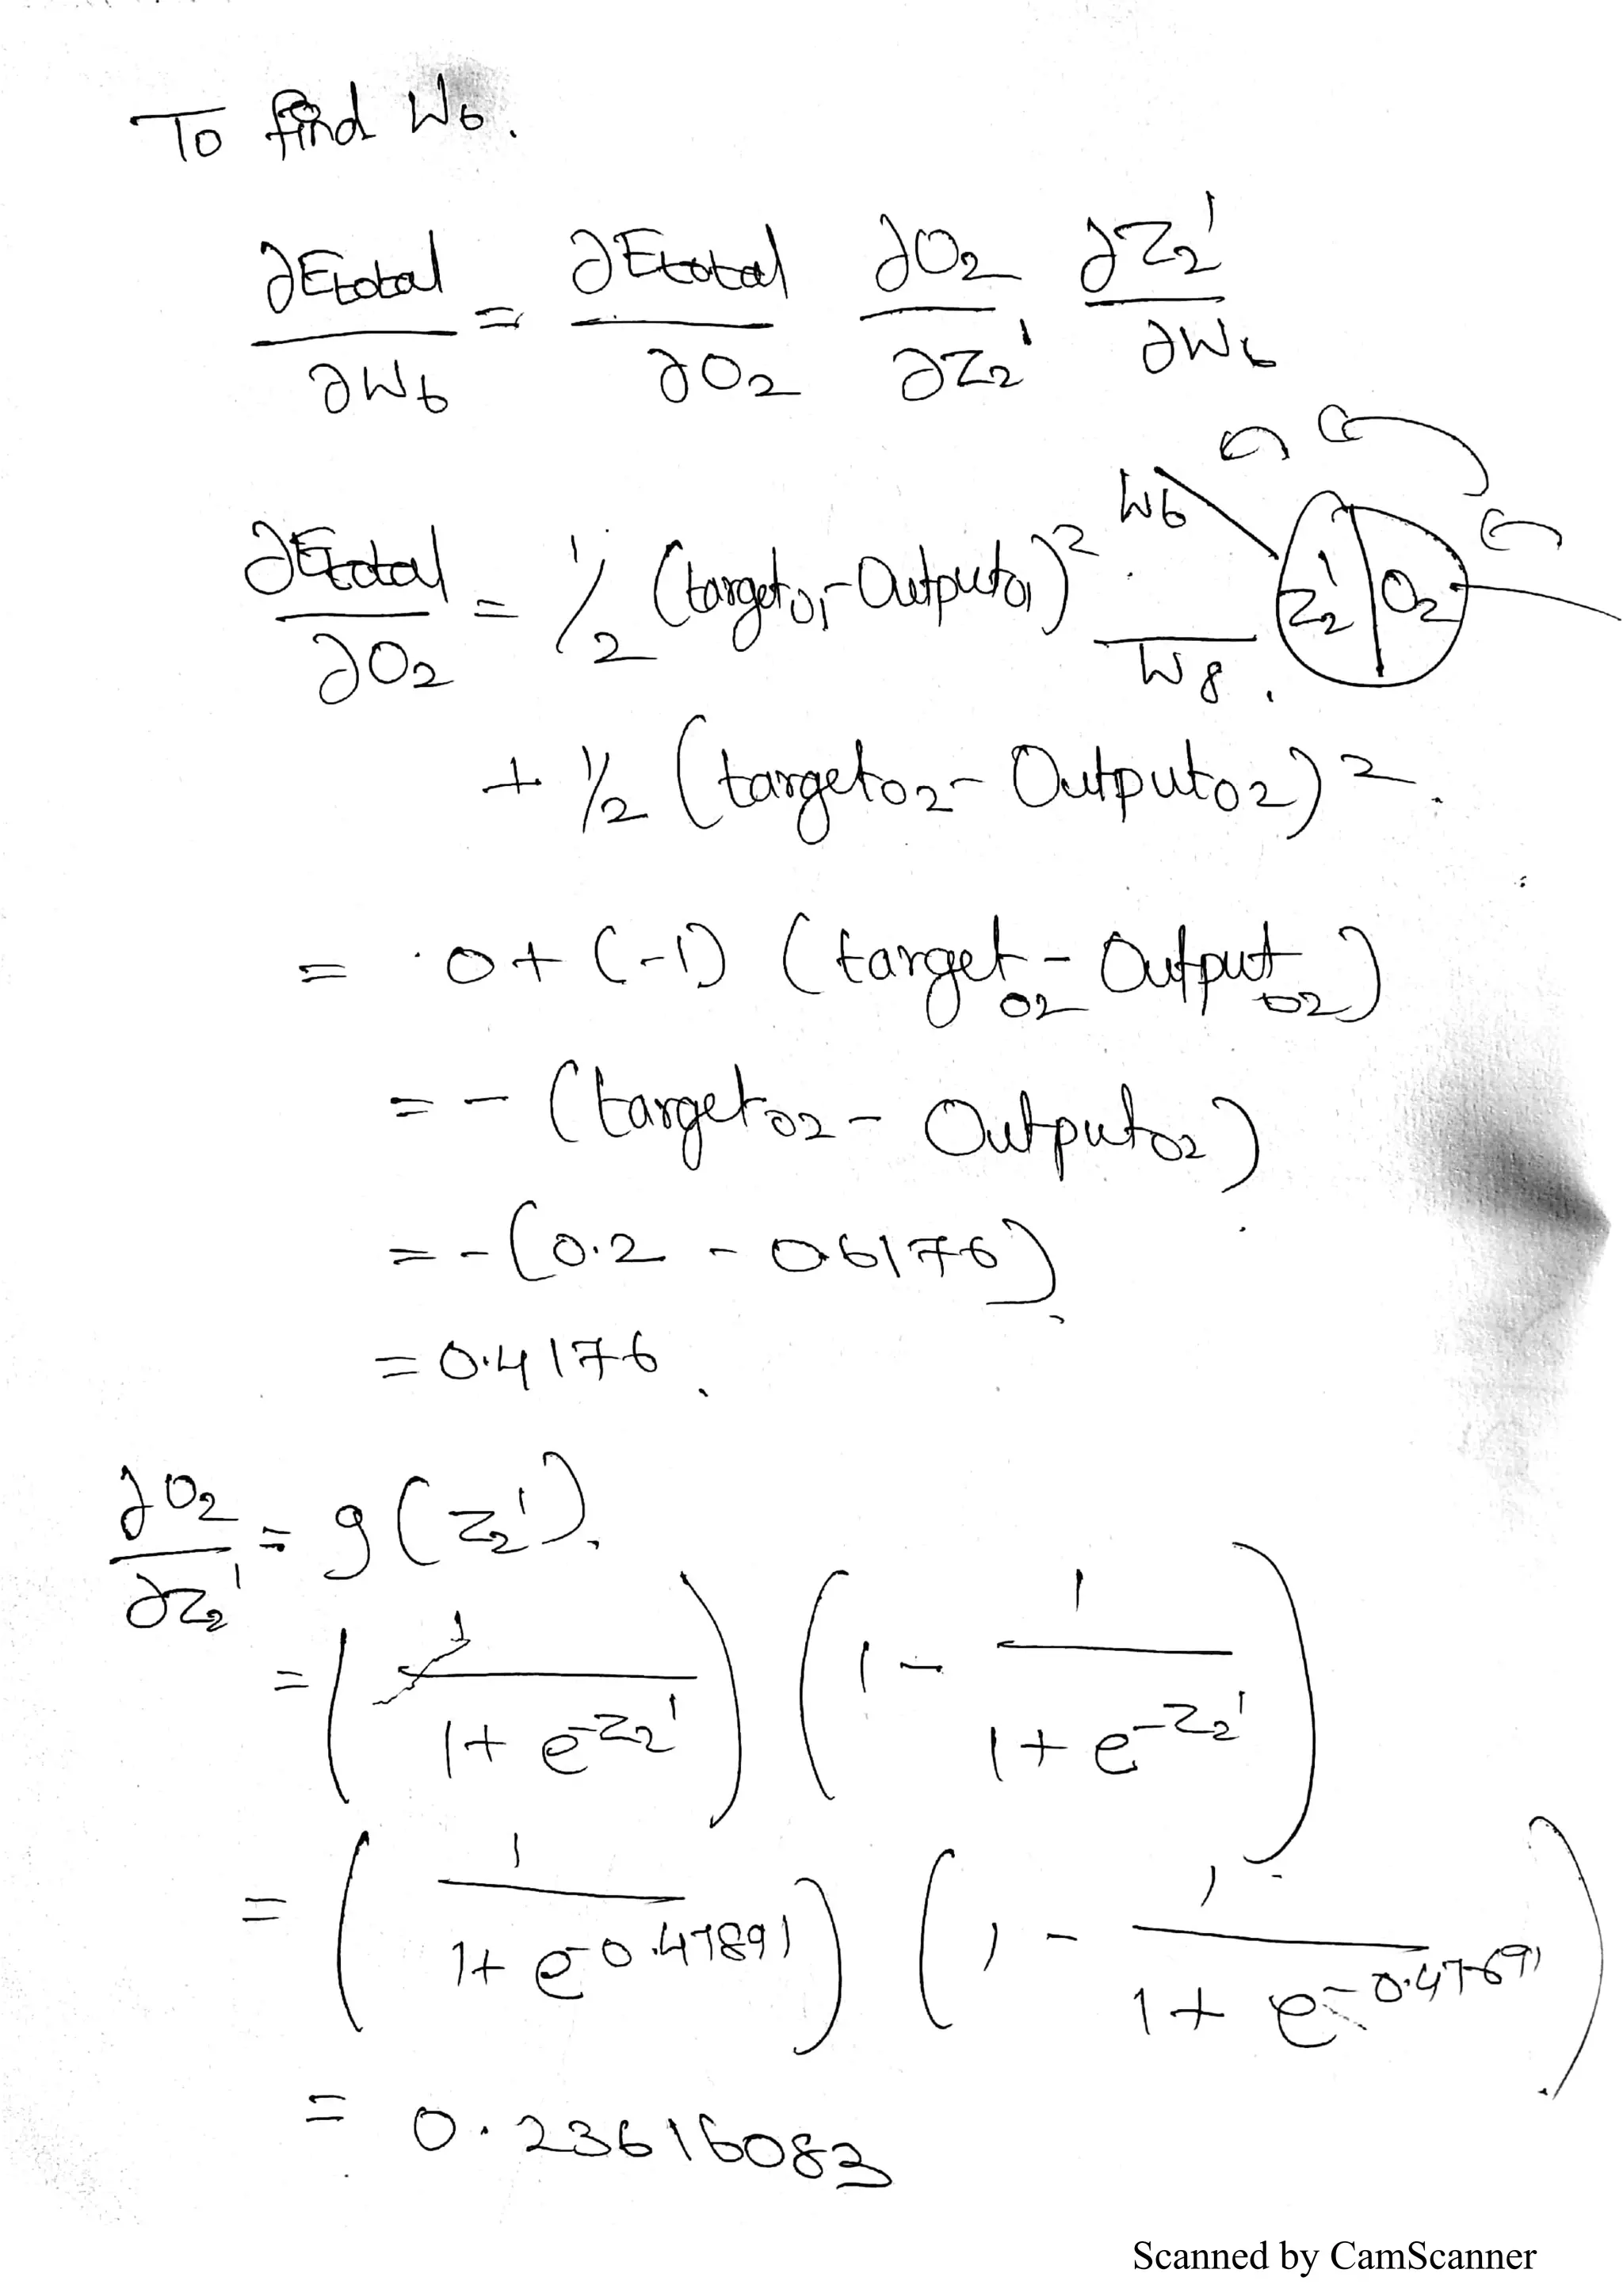 To find W6.
∂Etotal / ∂W6 = ∂Etotal / ∂O2 ∂O2 / ∂Z2' ∂Z2' / ∂W6
W6
∂Etotal / ∂O2 = 1/2 (targeto1 - Outputo1)²
Z2' O2
W8
+ 1/2 (targeto2 - Outputo2)².
= 0 + (-1) (target o2 - Output o2)
= - (targeto2 - Outputo2)
= - (0.2 - 0.6176)
= 0.4176.
∂O2 / ∂Z2' = g(Z2').
= (1 / 1 + e^-Z2') (1 - 1 / 1 + e^-Z2')
= (1 / 1 + e^-0.47891) (1 - 1 / 1 + e^-0.47691)
= 0.23616083
Scanned by CamScanner